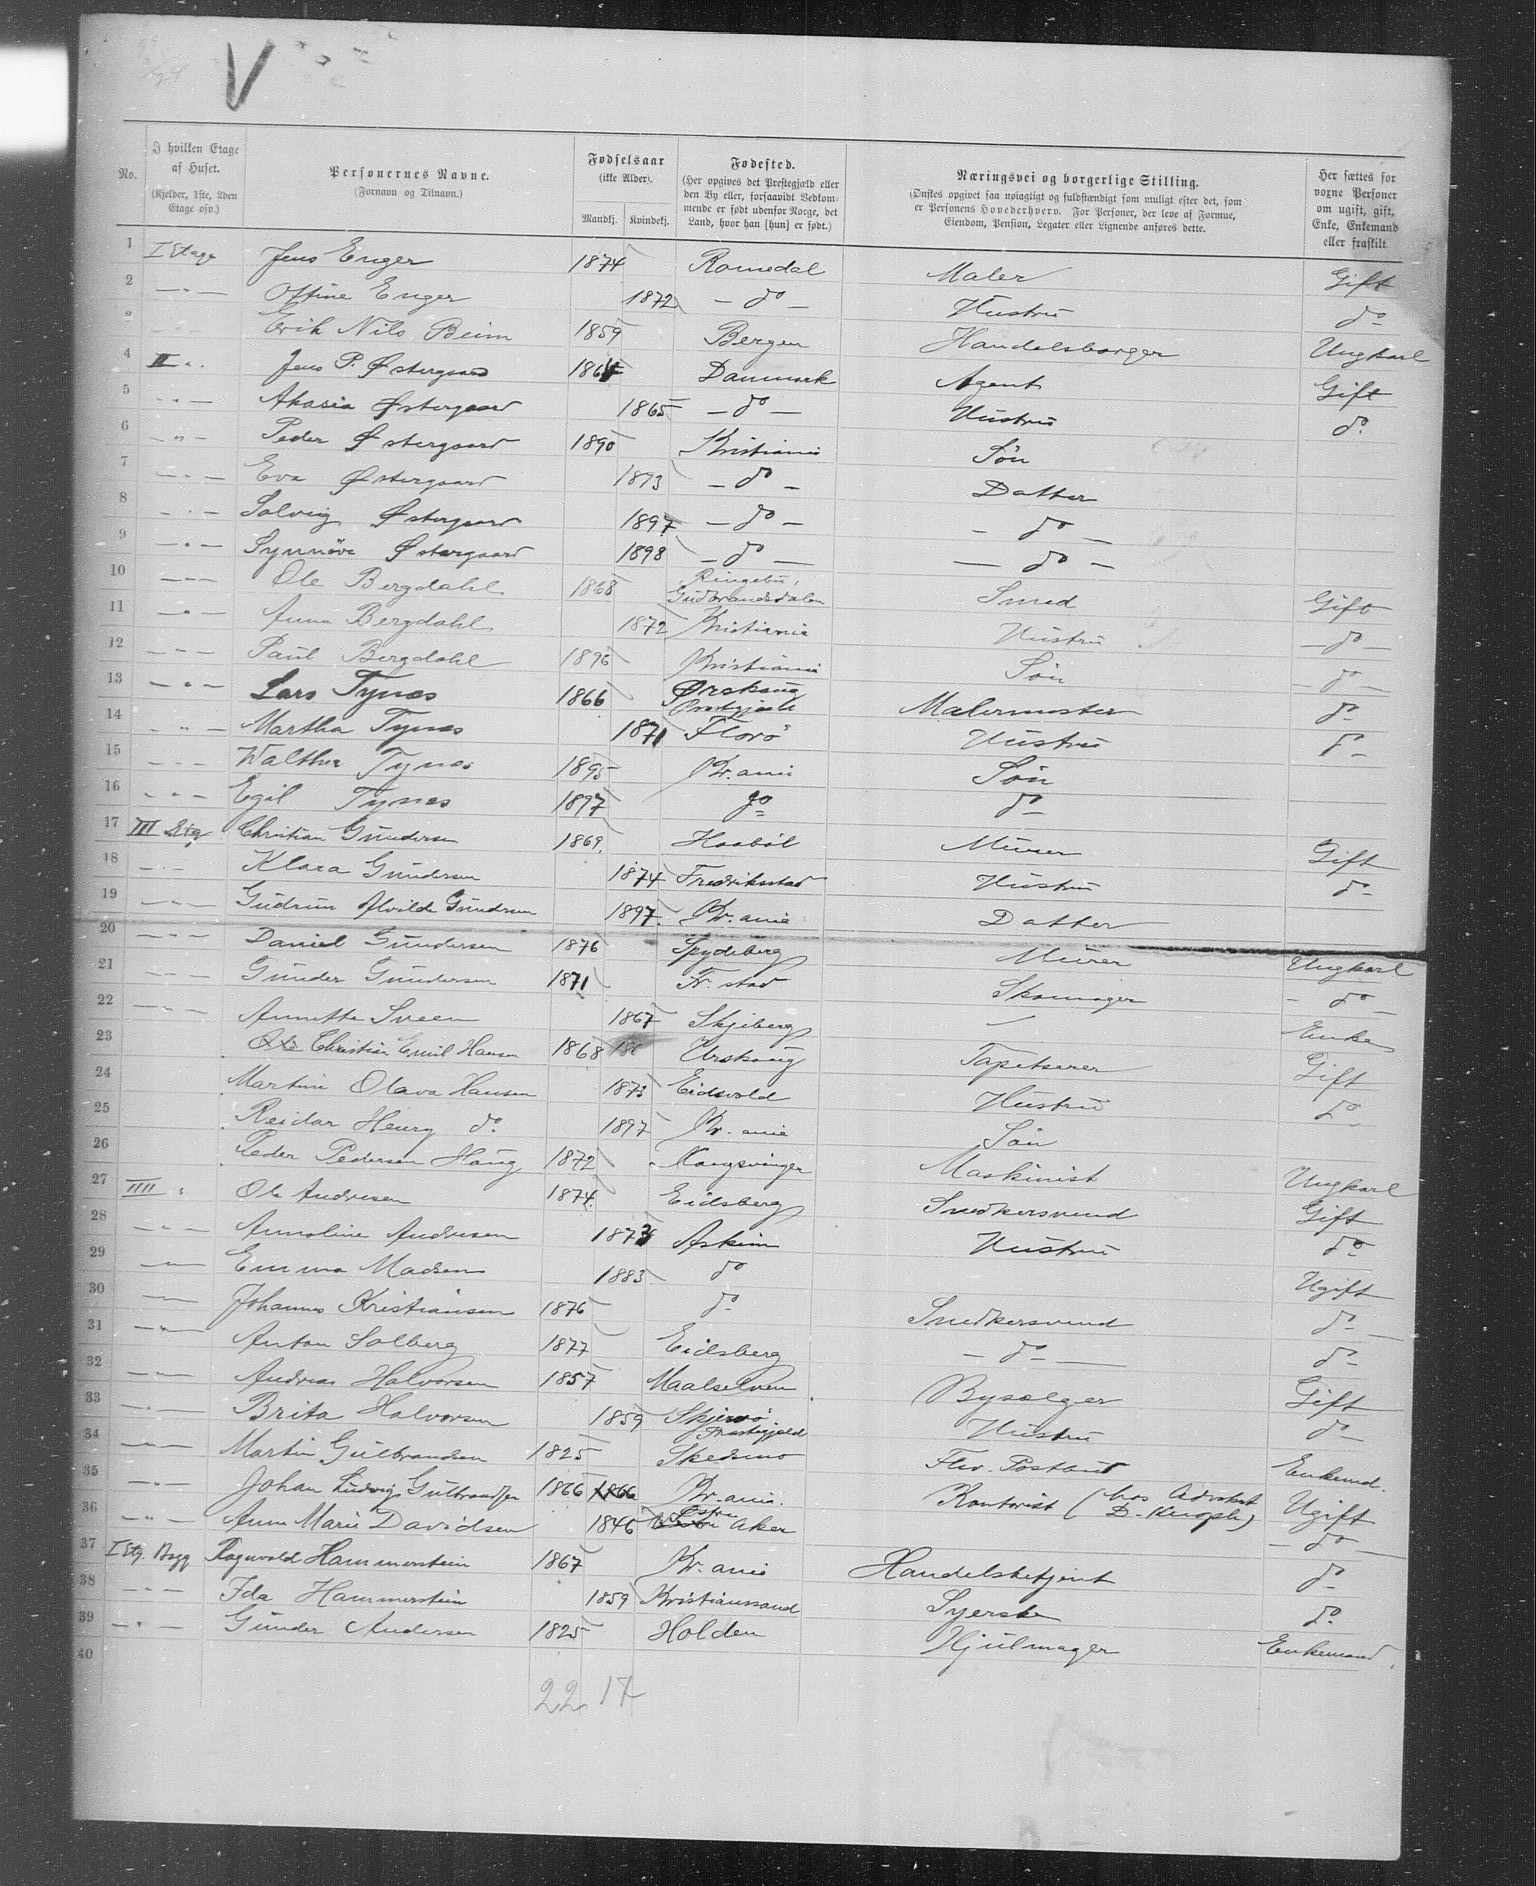 V
No.
I hvilken Etage af Huset. (Kjelder, 1ste, 2den Etage osv.)
Personernes Navne. (Fornavn og Tilnavn.)
Fødselsaar (ikke Alder). Mandkj. Kvindekj.
Fødested. (Her opgives det Prestegjæld eller den By eller, forsaavidt Vedkommende er født udenfor Norge, det Land, hvor han [hun] er født.)
Næringsvei og borgerlige Stilling. (Ønskes opgivet saa nøiagtigt og fuldstændigt som muligt efter det, som er Personens Hovederhverv. For Personer, der leve af Formue, Eiendom, Pension, Legater eller Lignende anføres dette.
Her sættes for voxne Personer om ugift, gift, Enke, Enkemand eller fraskilt.
1 I Etage Jens Enger 1874 Romedal Maler Gift
2 — " — Oftine Enger 1872 — do — Hustru do
3 Erik Nils Beim 1859 Bergen Handelsborger Ungkarl
4 II " Jens P. Østergaard 1864 Danmark Agent Gift
5 — " — Akasia Østergaard 1865 — do — Hustru do
6 — " — Peder Østergaard 1890 Kristiania Søn
7 — " — Eva Østergaard 1893 — do — Datter
8 — " — Solveig Østergaard 1897 — do — — do —
9 — " — Synnöve Østergaard 1898 — do — — do —
10 — " — Ole Bergdahl 1868 Ringebu, Gudbrandsdalen Smed Gift
11 — " — Anna Bergdahl 1872 Kristiania Hustru — do —
12 — " — Paul Bergdahl 1896 Kristiania Søn — do —
13 — " — Lars Tynæs 1866 Ørskoug Prestgjæld Malermester do
14 — " — Martha Tynæs 1871 Florö Hustru do
15 — " — Walther Tynæs 1895 Kr.ania Søn
16 — " — Egil Tynæs 1897 do do
17 III Etg Christian Gundersen 1869 Haaböl Murer Gift
18 — " — Klara Gundersen 1874 Fredriksstad Hustru do
19 — " — Gudrun Alvilde Gundersen 1897 Kr.ania Datter
20 — " — Daniel Gundersen 1876 Spydeberg Murer Ungkarl
21 — " — Gunder Gundersen 1871 Fr.stad Skomager — do —
22 — " — Annette Sveen 1867 Skjeberg — Enke
23 Christian Emil Hansen 1868 Urskoug Tapetserer Gift
24 Martine Olava Hansen 1873 Eidsvold Hustru do
25 Reidar Henry do 1897 Kr.ania Søn
26 Peder Pedersen Haug 1872 Kongsvinger Maskinist Ungkarl
27 IIII " Ole Andresen 1874 Eidsberg Snedkersvend Gift
28 — " — Annoline Andresen 1873 Askim Hustru do
29 — " — Emma Madsen 1883 do Ugift
30 — " — Johannes Kristiansen 1876 do Snedkersvend do
31 — " — Anton Solberg 1877 Eidsberg — do — do
32 — " — Andreas Halvorsen 1857 Maalselven Bysælger Gift
33 — " — Brita Halvorsen 1859 Skjervö Prestegjeld Hustru do
34 — " — Martin Gulbrandsen 1825 Skedsmo Postbud Enkemd.
35 — " — Johan Ludvig Gulbrandsen 1866 1866 Kr.ania. Kontorist (hos Advokat ) Ugift
36 — " — Anne Marie Davidsen 1846 Østre Aker — do —
37 I Etg. Bagg Ragnvald Hammerstein 1867 Kr.ania Handelsbetjent do
38 — " — Ida Hammerstein 1859 Kristianssand Syerske do
39 — " — Gunder Andersen 1825 Holden Hjulmager Enkemand
40
22 17